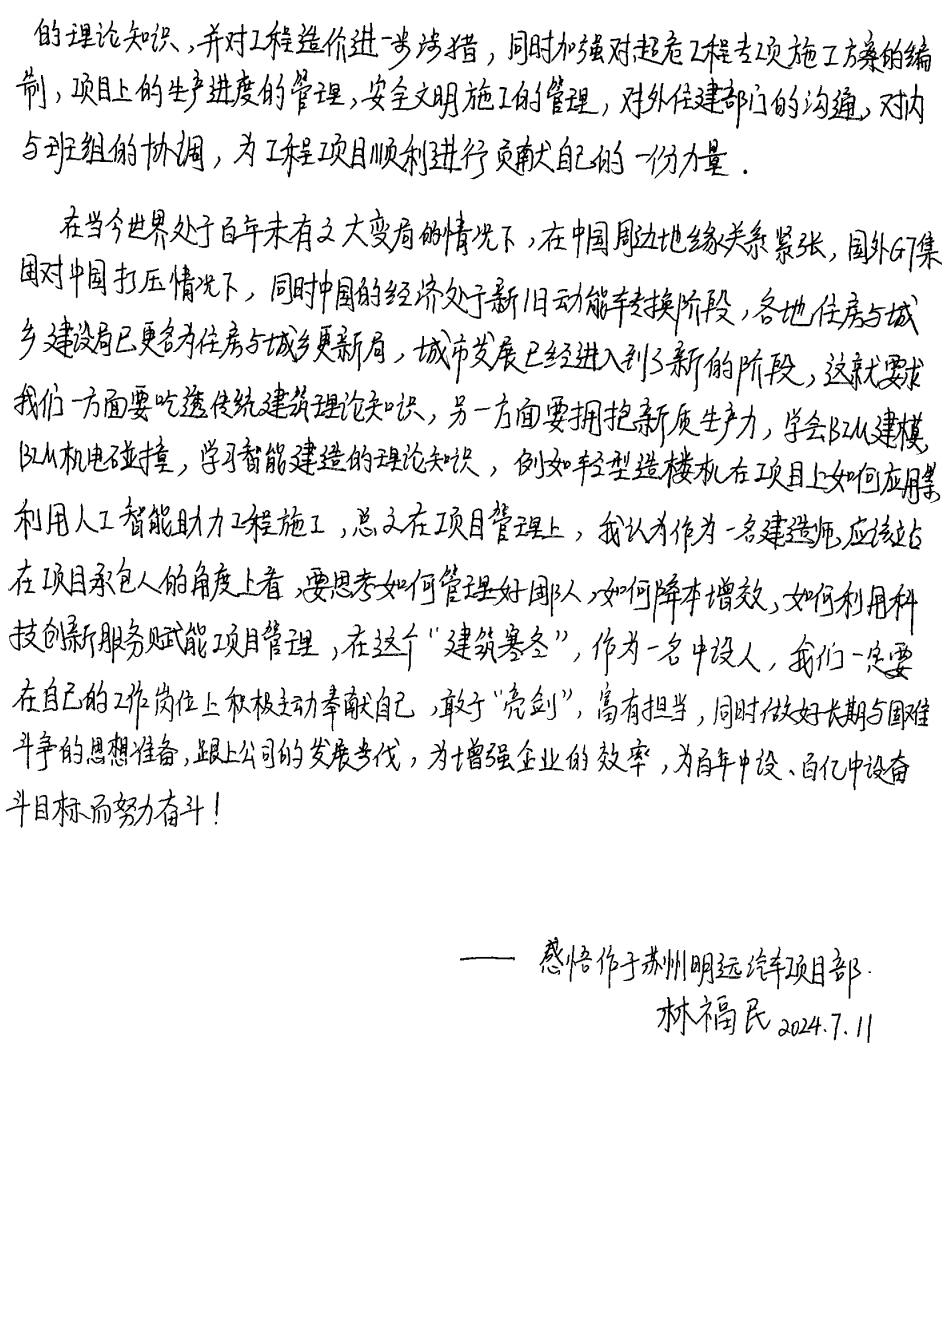 的理论知识,并对工程造价进一步涉猎,同时加强对超危工程专项施工方案的编
制,项目上的生产进度的管理,安全文明施工的管理,对外住建部门的沟通,对内
与班组的协调,为工程项目顺利进行贡献自己的一份力量.
在当今世界处于百年未有之大变局的情况下,在中国周边地缘关系紧张,国外G7集
团对中国打压情况下,同时中国的经济处于新旧动能转换阶段,各地住房与城
乡建设局已更名为住房与城乡更新局,城市发展已经进入到了新的阶段,这就要求
我们一方面要吃透传统建筑理论知识,另一方面要拥抱新质生产力,学会BIM建模,
BIM机电碰撞,学习智能建造的理论知识,例如轻型造楼机在项目上如何应用等
利用人工智能助力工程施工,总之在项目管理上,我认为作为一名建造师,应该站
在项目承包人的角度上看,要思考如何管理好团队,如何降本增效,如何利用科
技创新服务赋能项目管理,在这个“建筑寒冬”,作为一名中设人,我们一定要
在自己的工作岗位上积极主动奉献自己,敢于“亮剑”,富有担当,同时做好长期与困难
斗争的思想准备,跟上公司的发展步伐,为增强企业的效率,为百年中设、百亿中设奋
斗目标而努力奋斗!
—— 感悟作于苏州明远汽车项目部.
林福民 2024.7.11